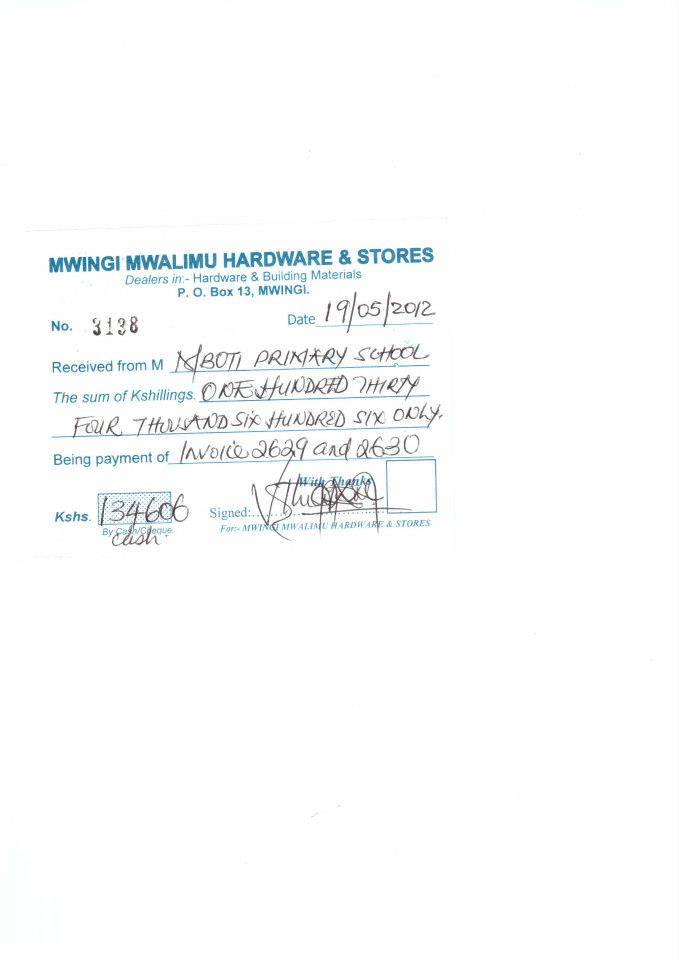 MWINGI MWALIMU HARDWARE & STORES
Dealers in:- Hardware & Building Materials
P. O. Box 13, MWINGI.
No. 3138 Date 19/05/2012
Received from M MBOTI PRIMARY SCHOOL
The sum of Kshillings. ONE HUNDRED THIRTY
FOUR THOUSAND SIX HUNDRED SIX ONLY.
Being payment of Invoice 2629 and 2630
With Thanks
Kshs. 134606 Signed:
By Cash/Cheque. For:- MWINGI MWALIMU HARDWARE & STORES
Cash.